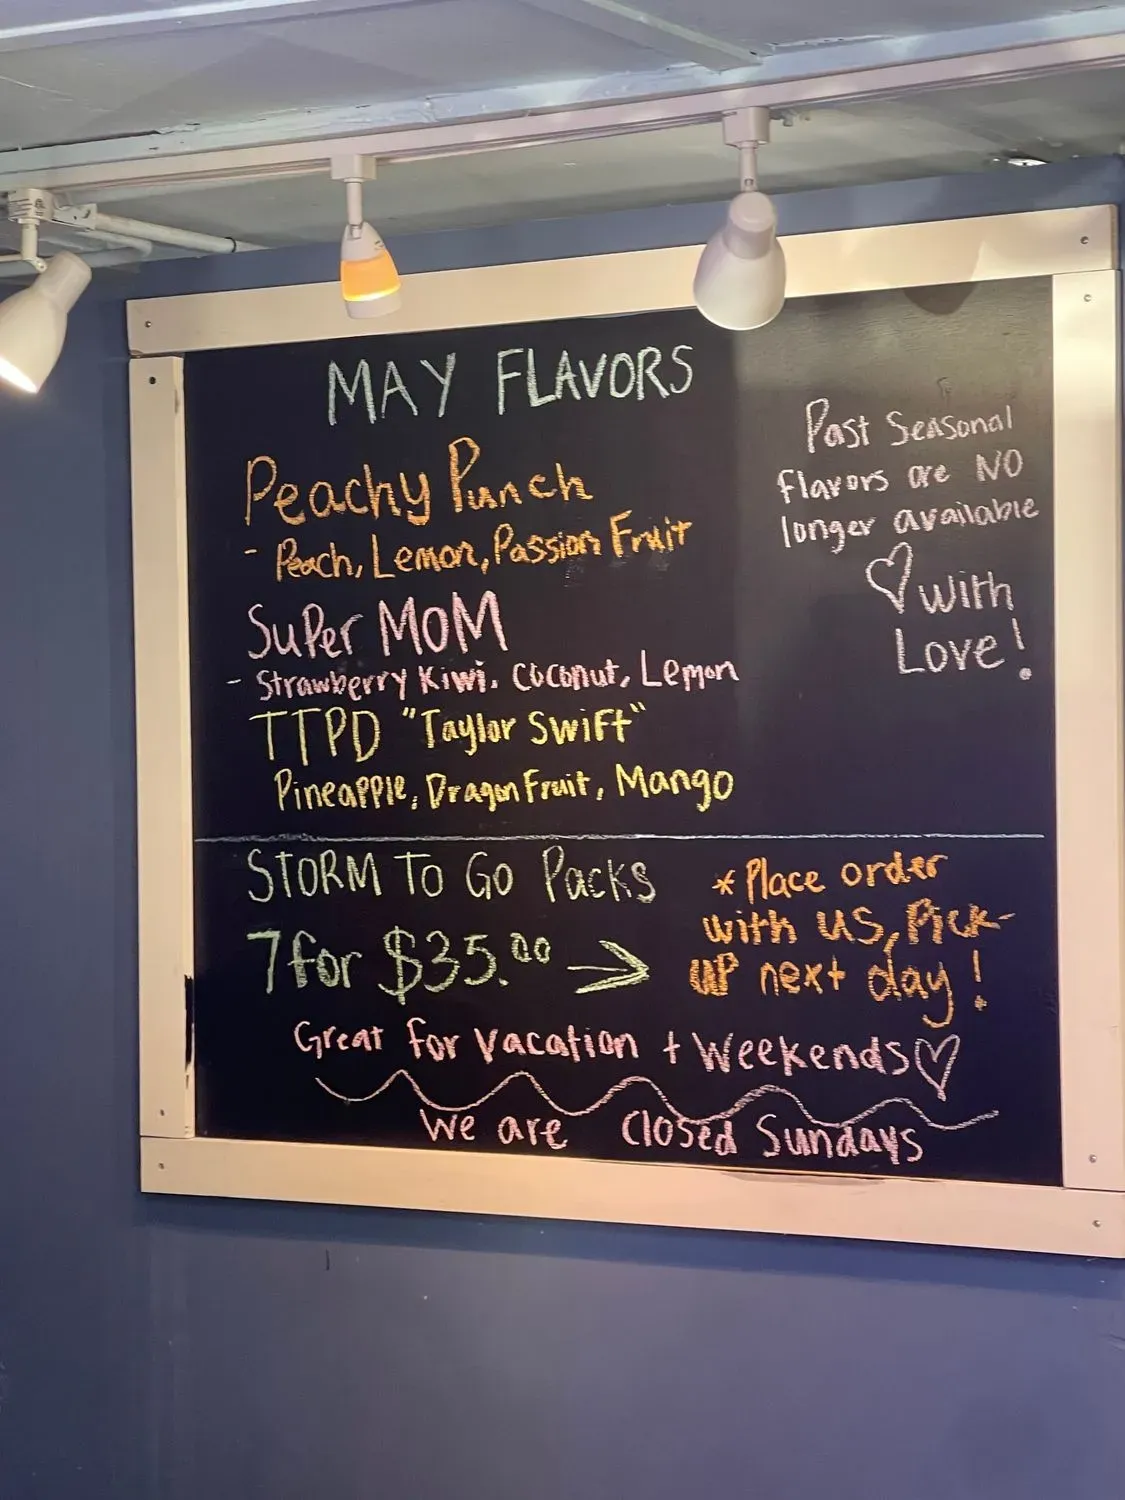 MAY FLAVORS
Peachy Punch
- Peach, Lemon, Passion Fruit
Super MOM
- Strawberry Kiwi, Coconut, Lemon
TTPD "Taylor Swift"
Pineapple, Dragon Fruit, Mango
Past Seasonal
flavors are NO
longer available
♡ With
Love!
STORM To Go Packs
7 for $35.00 →
* Place order
with us, Pick-
up next day!
Great for Vacation + Weekends ♡
We are Closed Sundays